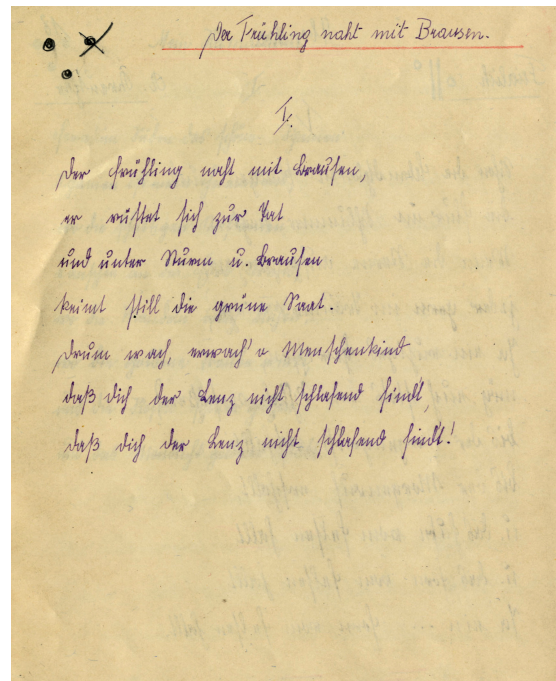 Der Frühling naht mit Brausen.
I.
Der Frühling naht mit Braußen,
er rüstet sich zur Tat
und unter Sturm u. Braußen
keimt still die grüne Saat.
Drum wach, erwach' o Menschenkind
daß dich der Lenz nicht schlafend findt,
daß dich der Lenz nicht schlafend findt!